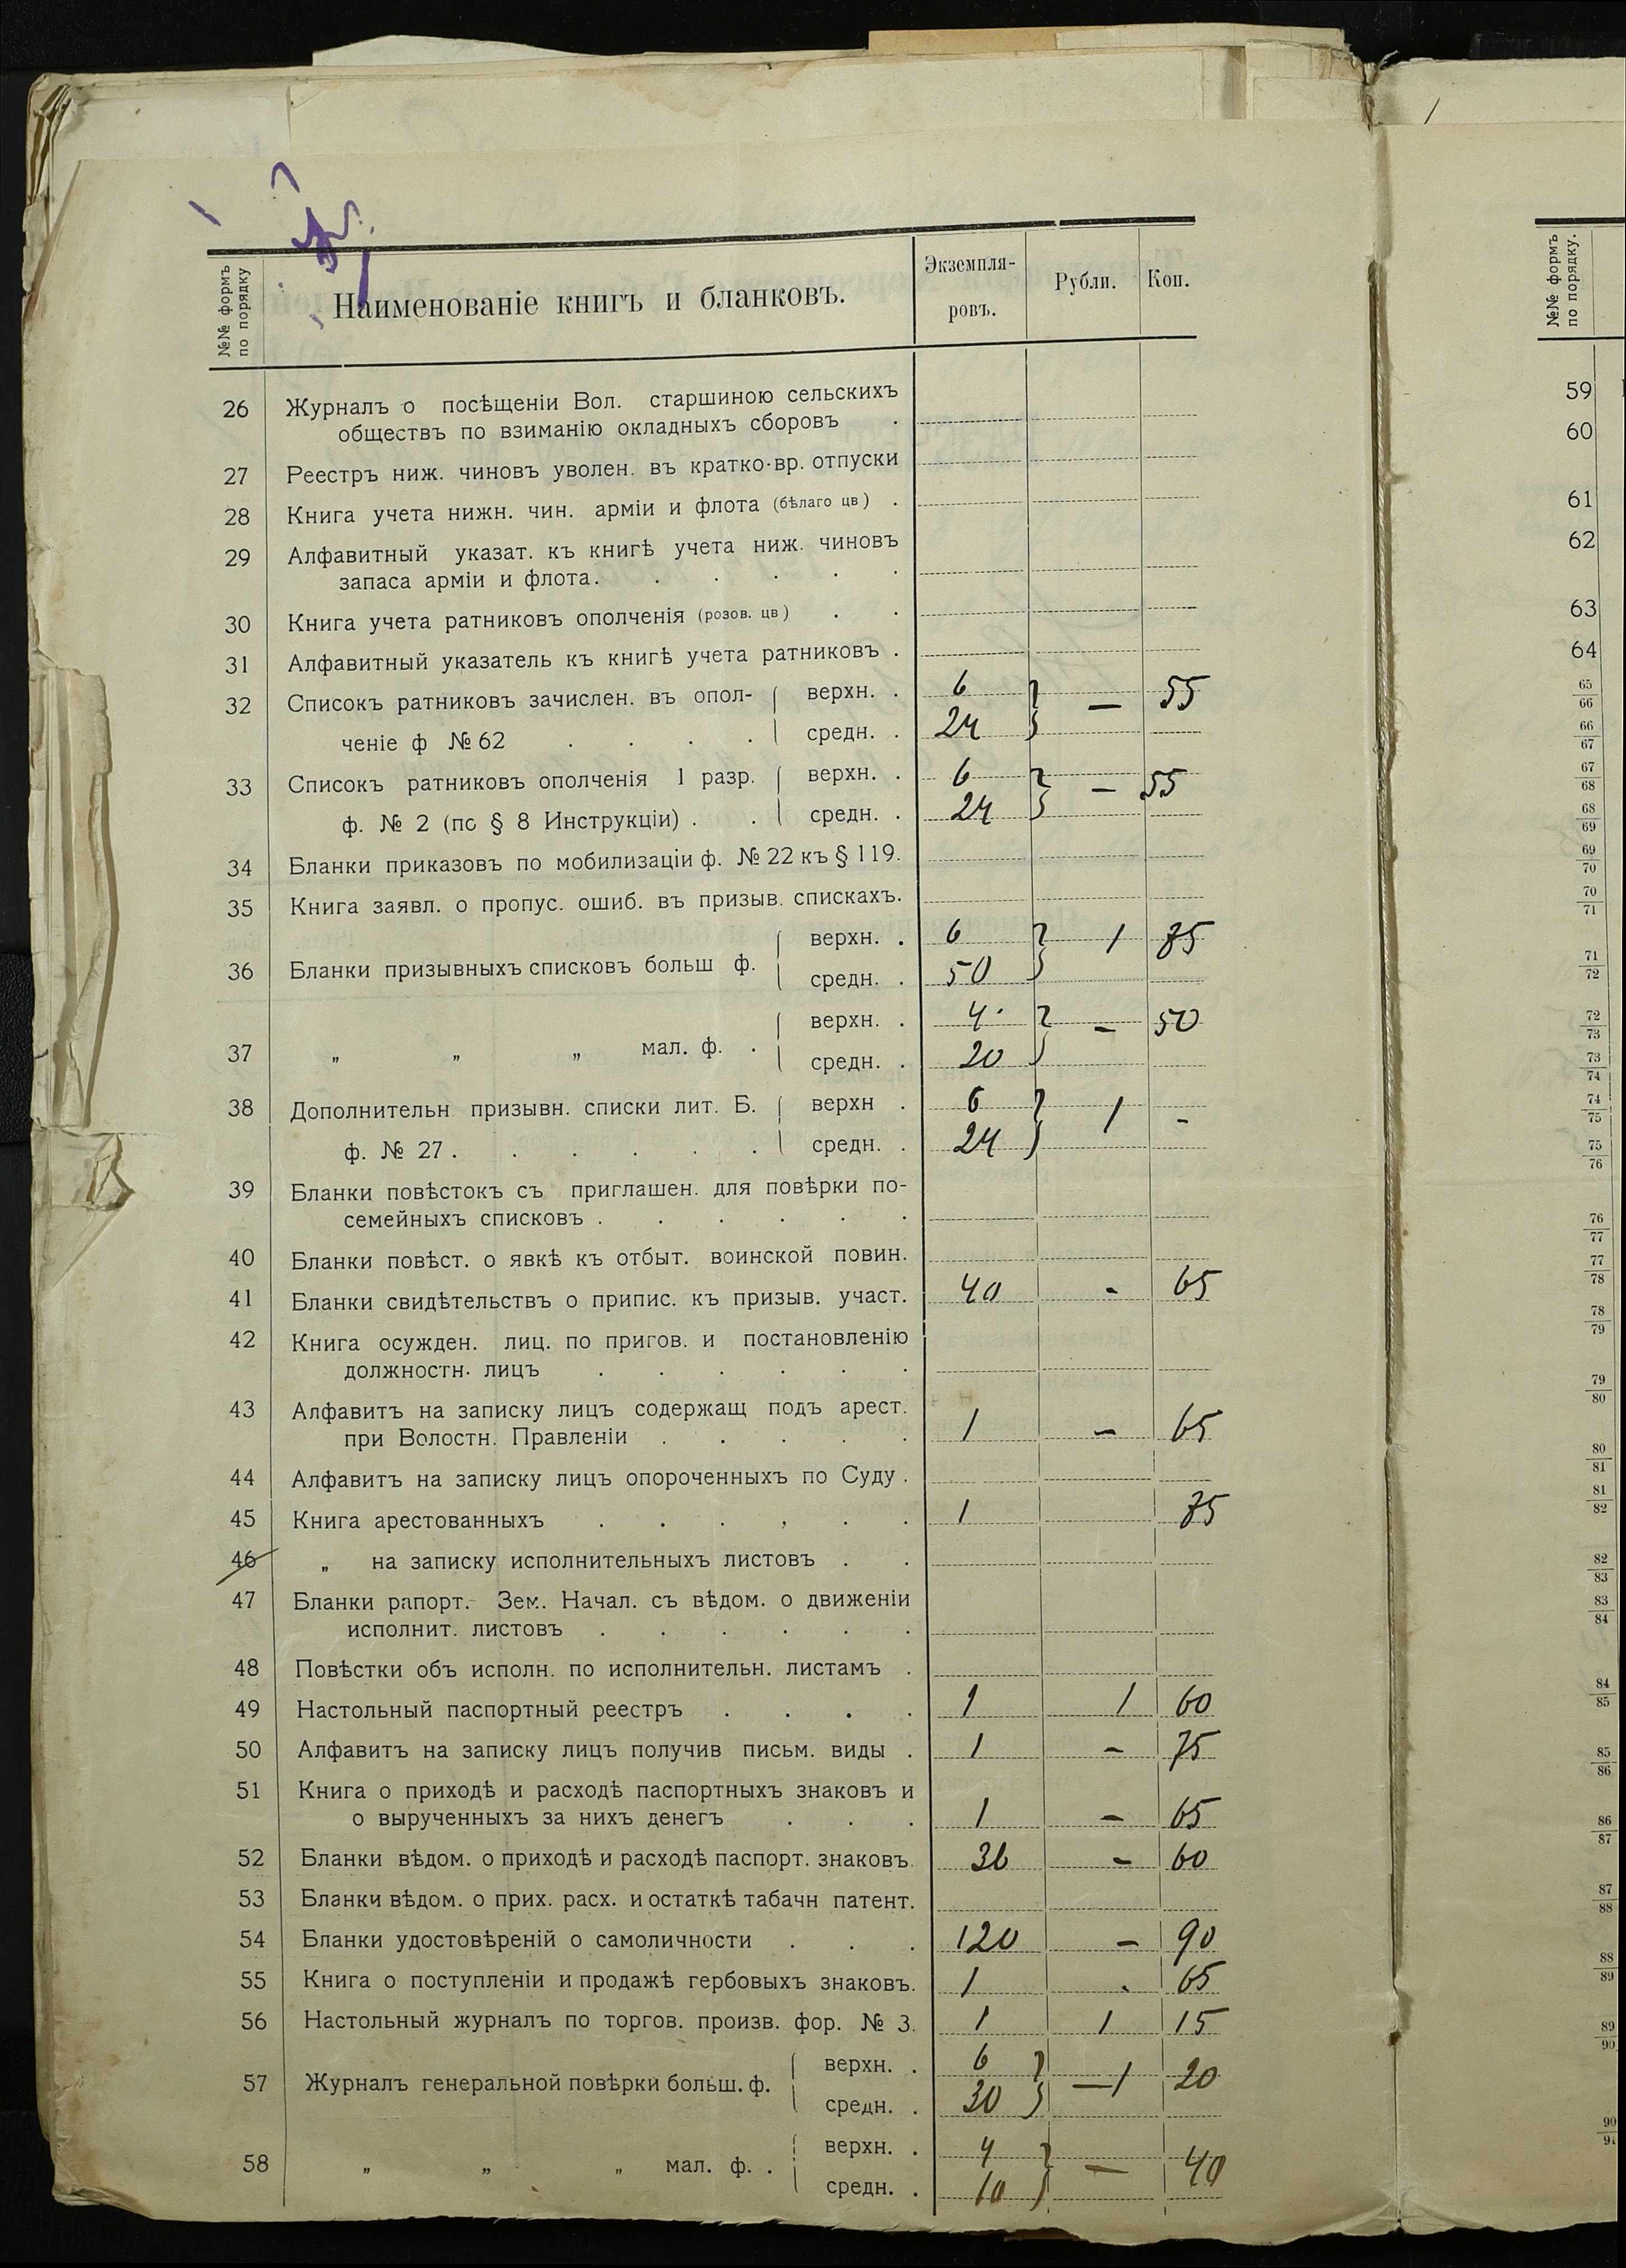 №№ формъ по порядку
Наименованіе книгъ и бланковъ.
Экземпля-
ровъ.
Рубли.
Коп.
26 Журналъ о посѣщеніи Вол. старшиною сельскихъ
обществъ по взиманію окладныхъ сборовъ .
27 Реестръ ниж. чиновъ уволен. въ кратко-вр. отпуски
28 Книга учета нижн. чин. арміи и флота (бѣлаго цв) .
29 Алфавитный указат. къ книгѣ учета ниж. чиновъ
запаса арміи и флота. . . . .
30 Книга учета ратниковъ ополченія (розов. цв) . .
31 Алфавитный указатель къ книгѣ учета ратниковъ .
32 Списокъ ратниковъ зачислен. въ опол- верхн. . 6 — 55
ченіе ф № 62 . . . . средн. . 24
33 Списокъ ратниковъ ополченія 1 разр. верхн. . 6 — 55
ф. № 2 (по § 8 Инструкціи) . . средн. . 24
34 Бланки приказовъ по мобилизаціи ф. № 22 къ § 119.
35 Книга заявл. о пропус. ошиб. въ призыв. спискахъ.
верхн. . 6 1 75
36 Бланки призывныхъ списковъ больш ф. средн. . 50
верхн. . 4 — 50
37 „ „ „ мал. ф. . средн. . 20
38 Дополнительн призывн. списки лит. Б. верхн . 6 1 -
ф. № 27 . . . . . . средн. . 24
39 Бланки повѣстокъ съ приглашен. для повѣрки по-
семейныхъ списковъ . . . . . .
40 Бланки повѣст. о явкѣ къ отбыт. воинской повин.
41 Бланки свидѣтельствъ о припис. къ призыв. участ. 40 - 65
42 Книга осужден. лиц. по пригов. и постановленію
должностн. лицъ . . . . . .
43 Алфавитъ на записку лицъ содержащ подъ арест.
при Волостн. Правленіи . . . . . 1 - 65
44 Алфавитъ на записку лицъ опороченныхъ по Суду .
45 Книга арестованныхъ . . . , . . 1 75
46 „ на записку исполнительныхъ листовъ . .
47 Бланки рапорт. Зем. Начал. съ вѣдом. о движеніи
исполнит. листовъ . . . . . .
48 Повѣстки объ исполн. по исполнительн. листамъ .
49 Настольный паспортный реестръ . . . . 1 1 60
50 Алфавитъ на записку лицъ получив письм. виды . 1 - 75
51 Книга о приходѣ и расходѣ паспортныхъ знаковъ и
о вырученныхъ за нихъ денегъ . . . 1 - 65
52 Бланки вѣдом. о приходѣ и расходѣ паспорт. знаковъ. 36 - 60
53 Бланки вѣдом. о прих. расх. и остаткѣ табачн патент.
54 Бланки удостовѣреній о самоличности . . . 120 - 90
55 Книга о поступленіи и продажѣ гербовыхъ знаковъ. 1 . 65
56 Настольный журналъ по торгов. произв. фор. № 3. 1 1 15
верхн. . 6 —1 20
57 Журналъ генеральной повѣрки больш. ф. средн. . 30
верхн. . 4 — 40
58 „ „ „ мал. ф. . средн. . 10
№№ формъ по порядку.
59
60
61
62
63
64
65/66
66/67
67/68
68/69
69/70
70/71
71/72
72/73
73/74
74/75
75/76
76/77
77/78
78/79
79/80
80/81
81/82
82/83
83/84
84/85
85/86
86/87
87/88
88/89
89/90
90/91